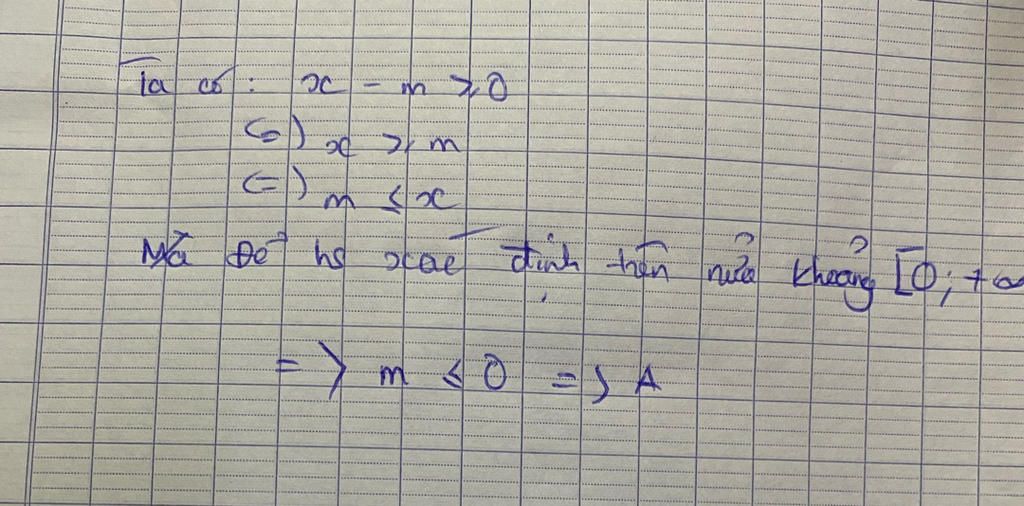 Ta có: x - m ≥ 0
(=) x ≥ m
(=) m ≤ x
Mà Để hs xác định trên nửa khoảng [0; +∞
=> m ≤ 0 => A